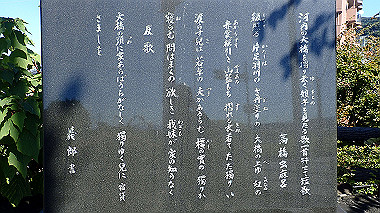 河内の大橋を独り去く娘子を見たる歌一首并に短歌
高橋虫麻呂
級照る 片足羽川の さ丹塗りの 大橋の上ゆ 紅の
赤裳裾引き 山藍もち 摺れる衣着て ただ独り い
渡らす児は 若草の 夫かあるらむ 橿の実の 独りか
寝らむ 問はまくの 欲しき 我妹が 家の知らなく
反歌
大橋の頭に家あらばうらがなしく 独りゆく児に 宿貸
さましを
義郎書